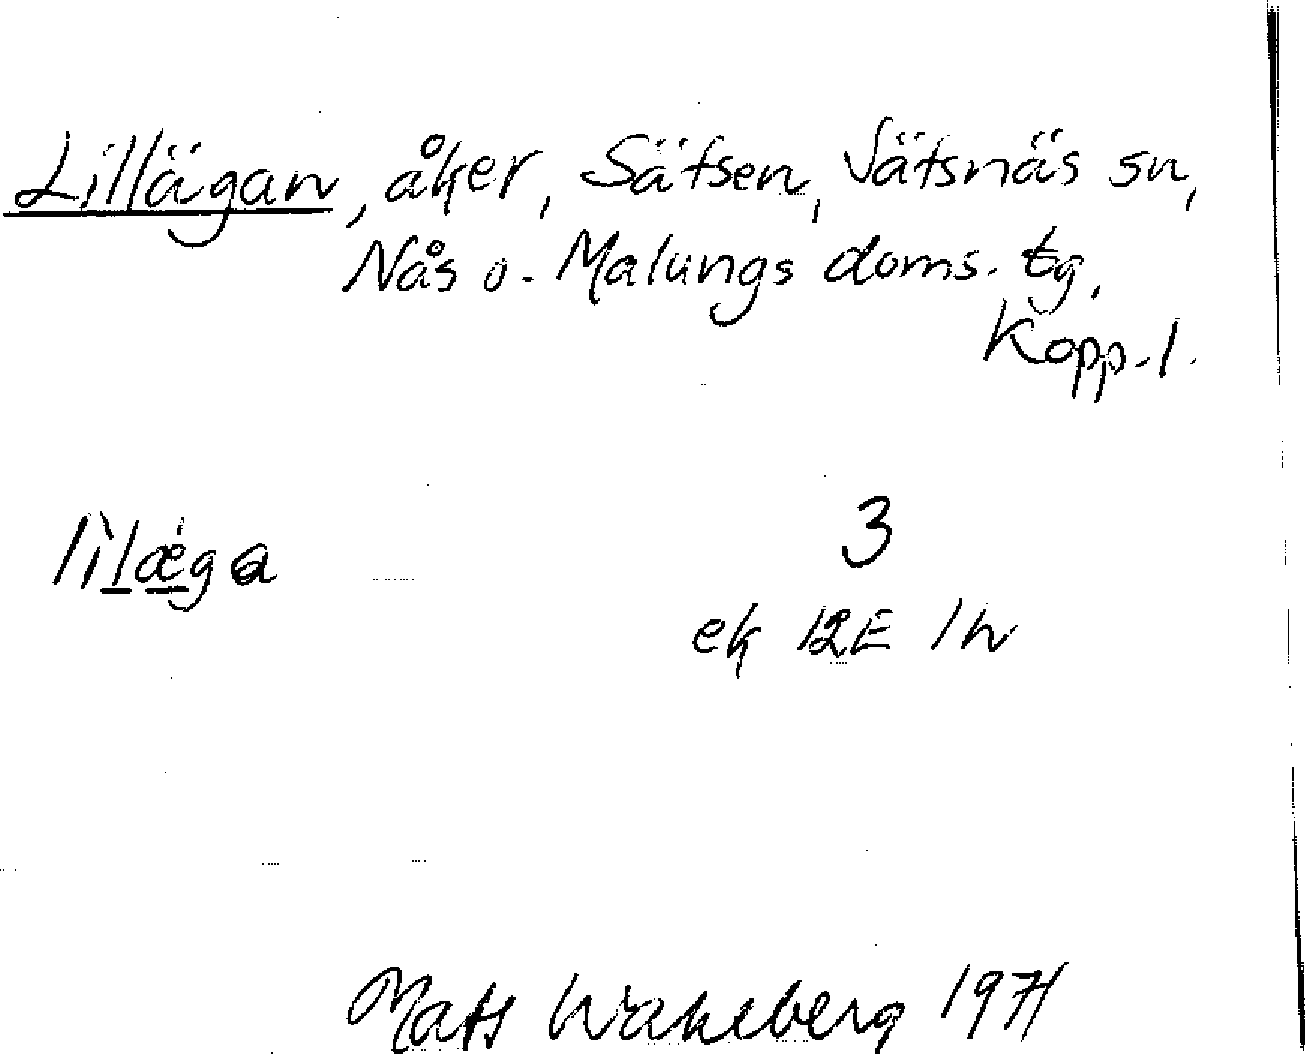 Lillägan, åker, Säfsen, Sätsnäs sn,
Nås o. Malungs doms. tg,
Kopp. l.
lìlǽga 3
ek 12E 1h
Mats Wahlberg 1971